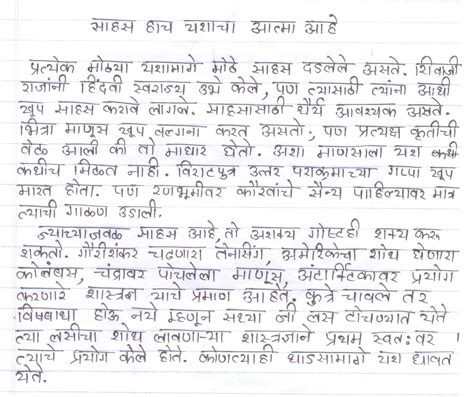 साहस हाच यशाचा आत्मा आहे
प्रत्येक मोठ्या यशामागे मोठे साहस दडलेले असते. शिवाजी
राजांनी हिंदवी स्वराज्य उभे केले, पण त्यासाठी त्यांना आधी
खूप साहस करावे लागले. साहसासाठी धैर्य आवश्यक असते.
भित्रा माणूस खूप वल्गना करत असतो, पण प्रत्यक्ष कृतीची
वेळ आली की तो माघार घेतो. अशा माणसाला यश कधी
कधीच मिळत नाही. विराटपुत्र उत्तर पराक्रमाच्या गप्पा खूप
मारत होता. पण रणभूमीवर कौरवांचे सैन्य पाहिल्यावर मात्र
त्याची गाळण उडाली.
ज्याच्याजवळ साहस आहे, तो अशक्य गोष्टही शक्य करू
शकतो. गौरीशंकर चढणारा तेनसिंग, अमेरिकेचा शोध घेणारा
कोलंबस, चंद्रावर पोचलेला माणूस, अंटार्क्टिकावर प्रयोग
करणारे शास्त्रज्ञ याचे प्रमाण आहेत. कुत्रे चावले तर
विषबाधा होऊ नये म्हणून सध्या जी लस टोचण्यात येते
त्या लसीचा शोध लावणाऱ्या शास्त्रज्ञाने प्रथम स्वतःवर
त्याचे प्रयोग केले होते. कोणत्याही धाडसामागे यश धावत
येते.